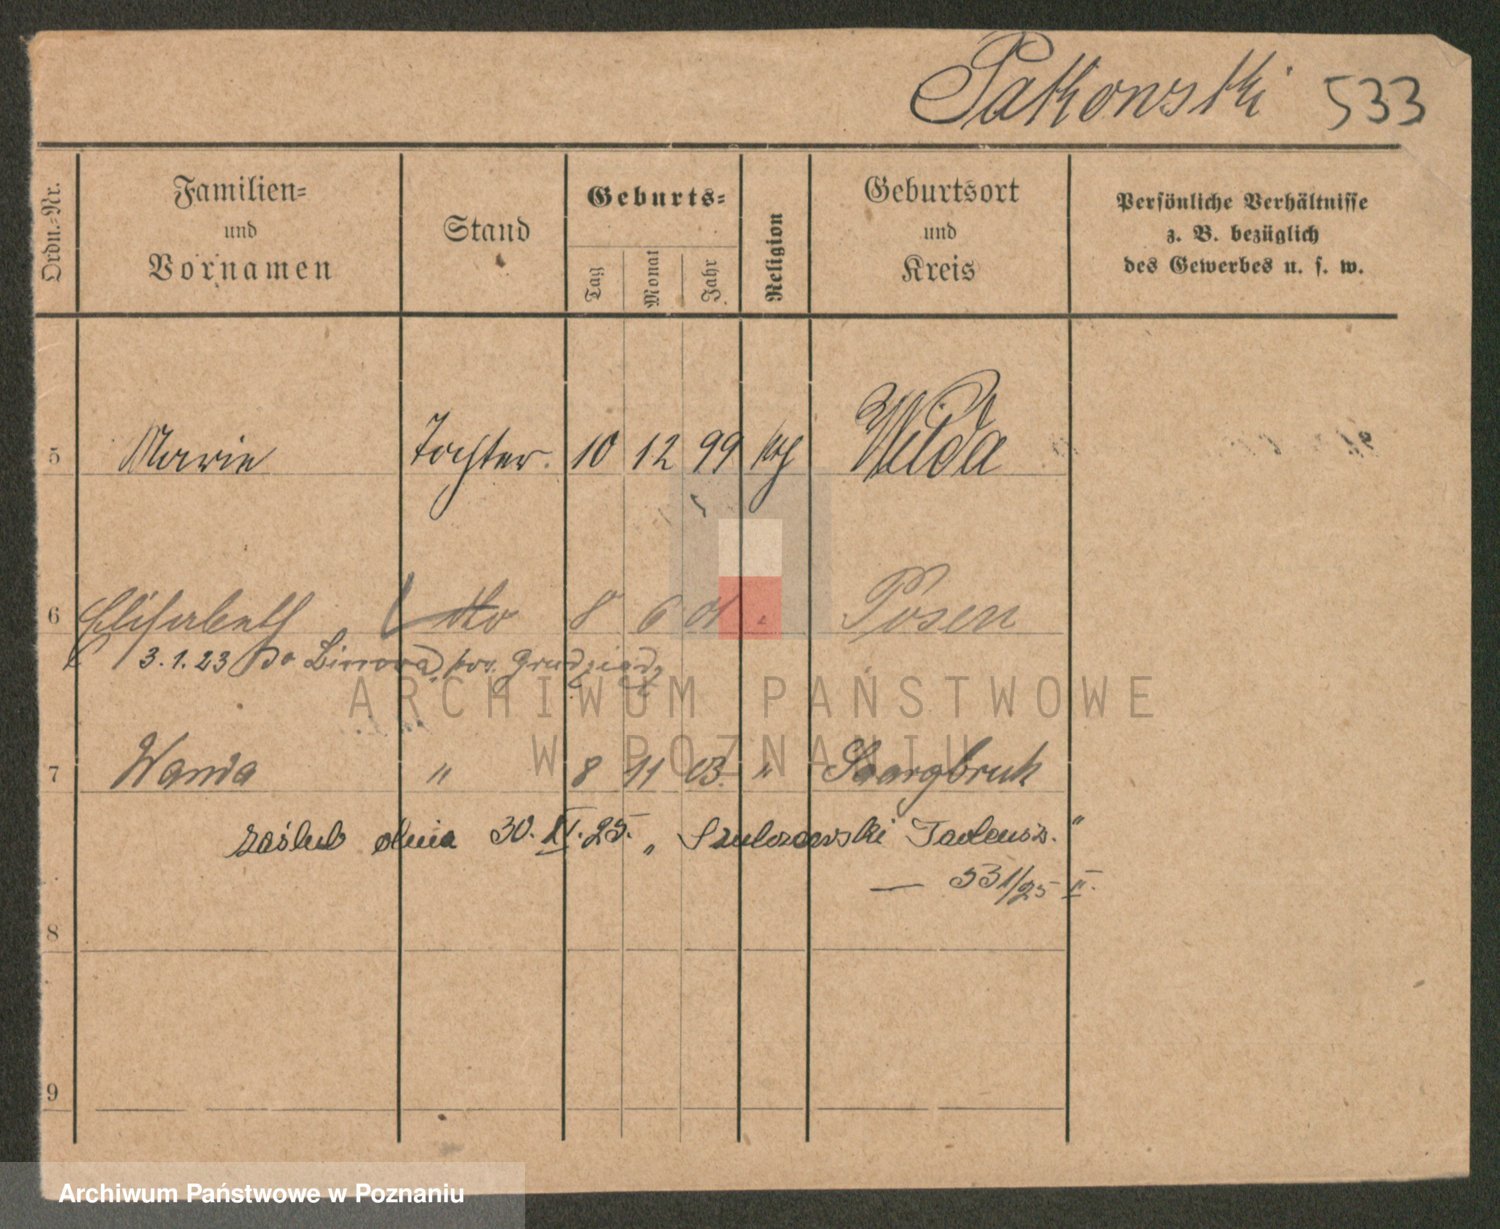 Patkowski 533
Ordn.-Nr. Familien- und Vornamen Stand Geburts- Tag Monat Jahr Religion Geburtsort und Kreis Persönliche Verhältnisse z. B. bezüglich des Gewerbes u. s. w.
5 Marie Tochter. 10 12 99 kth Wilda
6 Elisabeth dto 8 6 01 Posen
3.1.23 do pow. Grudziądz
7 Wanda " 8 11 03. "
zaślub dnia 30. XI. 25. „Szulczewski Tadeusz."
— 531/25 II.
8
9
ARCHIWUM PAŃSTWOWE
W POZNANIU
Archiwum Państwowe w Poznaniu